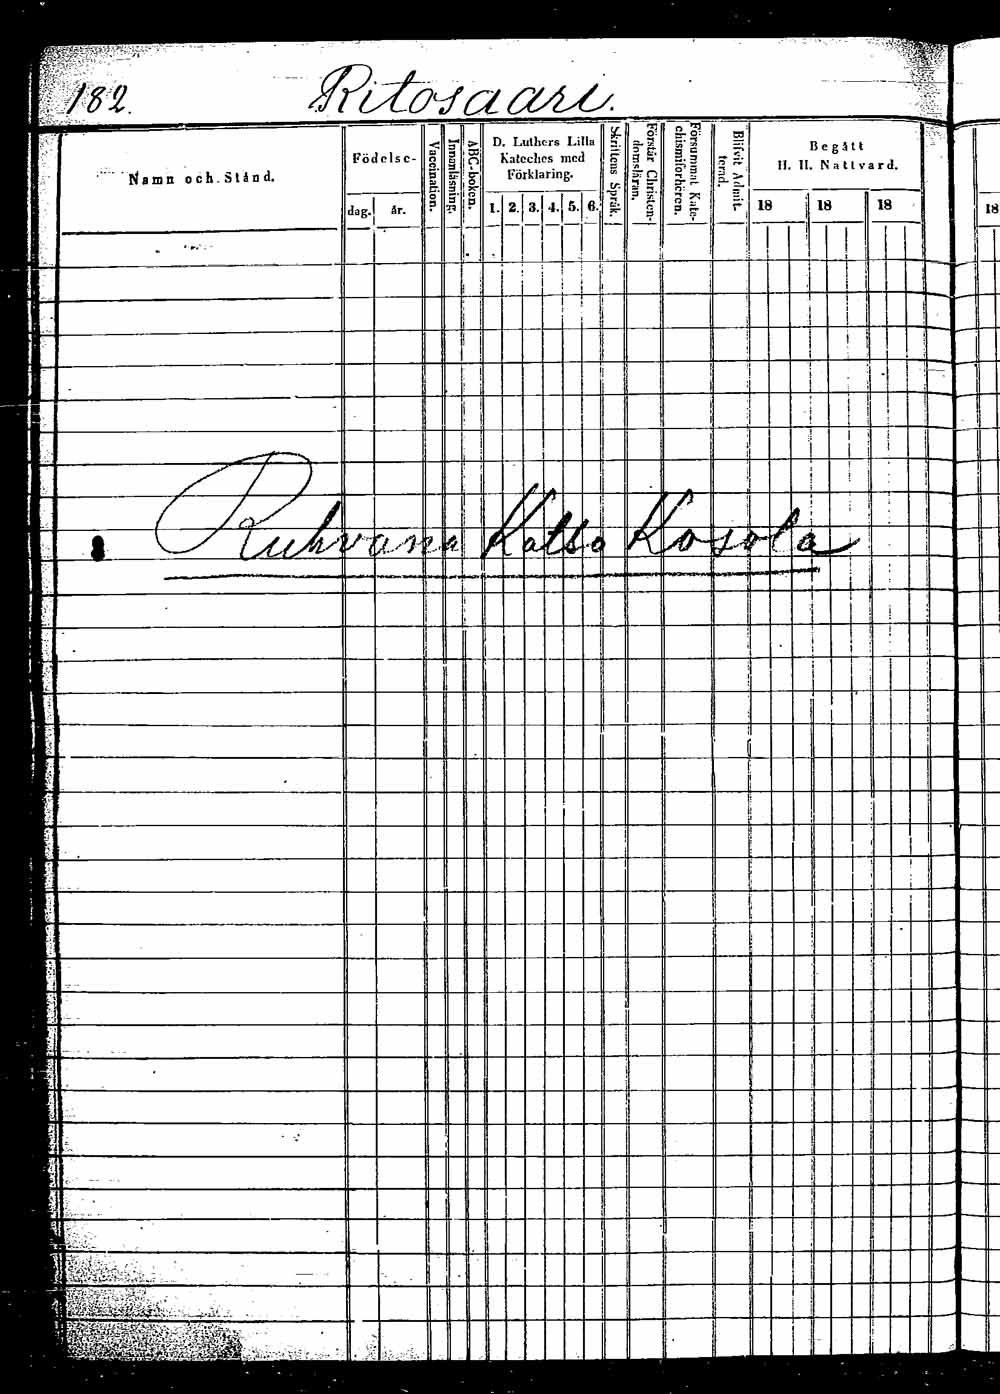 182. Ritosaari.
Namn och Stånd.
Födelse-
dag. år.
Vaccination.
Innanläsning.
ABC-boken.
D. Luthers Lilla
Kateches med
Förklaring.
1. 2. 3. 4. 5. 6.
Skriftens Språk.
Förstår Christen-
domsläran.
Försummat Kate-
chismiförhören.
Blifvit Admit-
terad.
Begått
H. H. Nattvard.
18 18 18
18
Ruhvana Katso Kosola